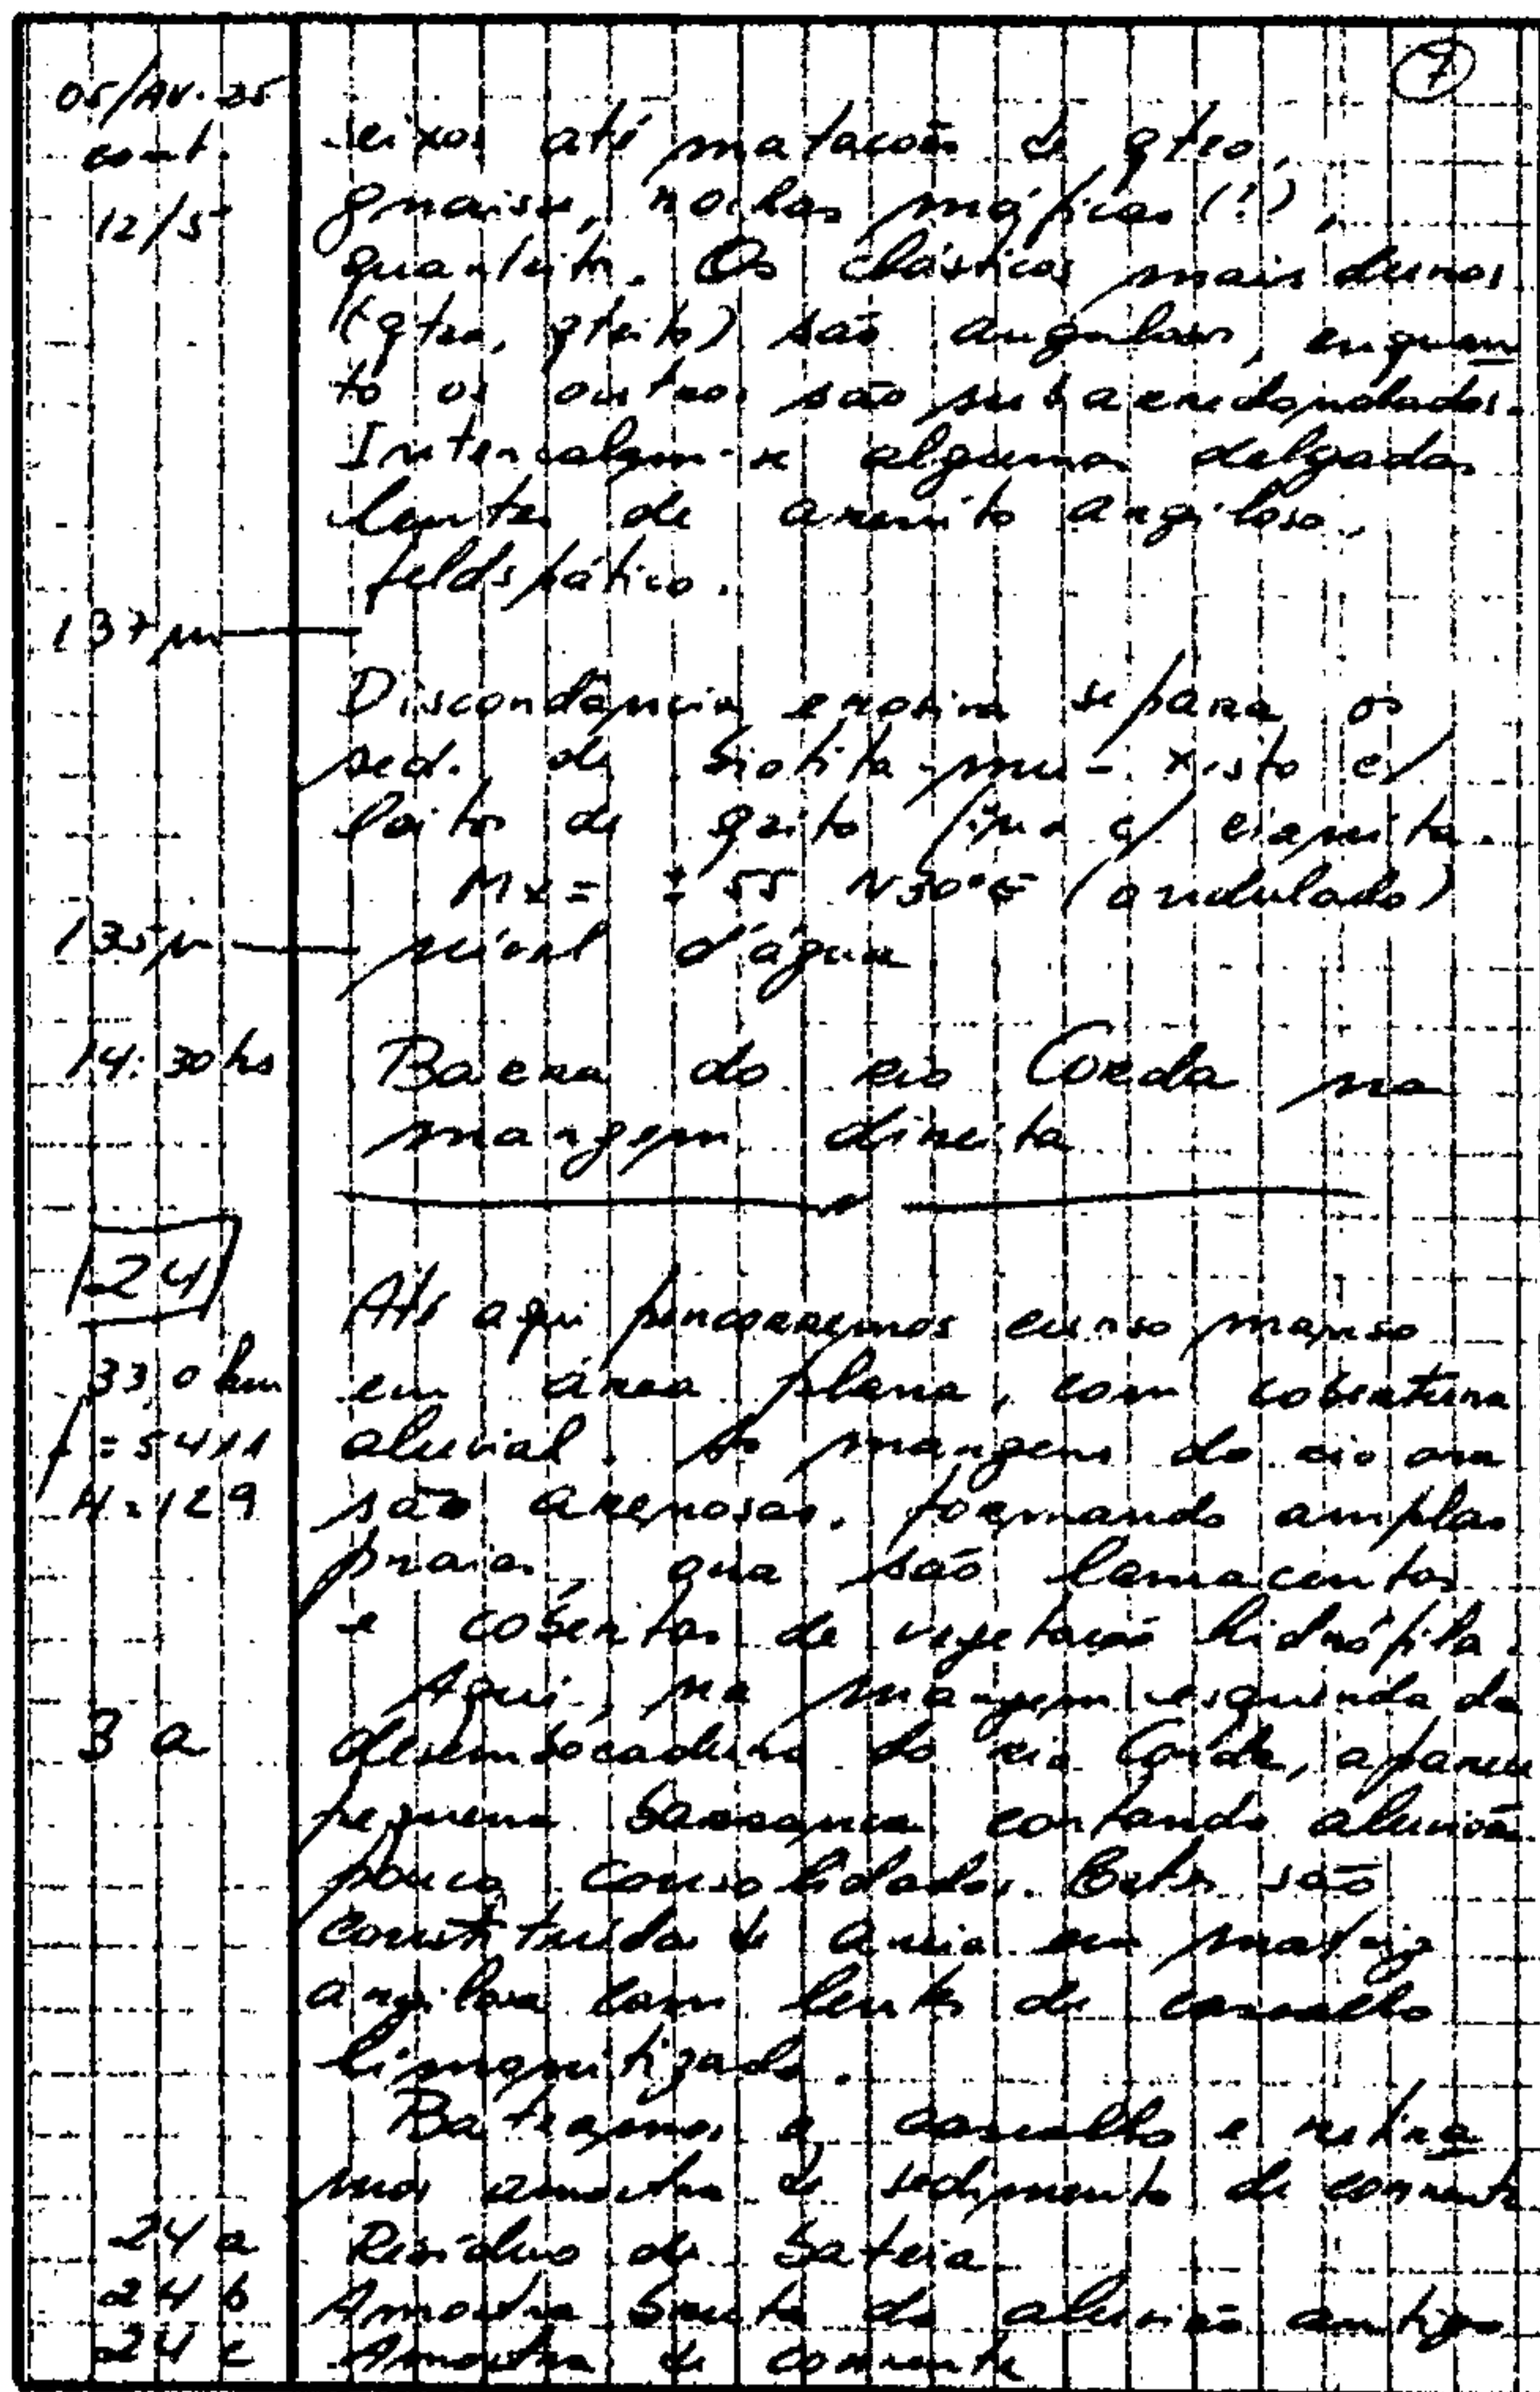 7
05/AV. 25
cont.
seixos até matacões de qtzo,
12/5
gnaisse, rochas máficas (?),
quartzito. Os clásticos mais duros
(qtzo, qtzito) são angulosos, enquan
to os outros são subarredondados.
Intercalam-se algumas delgadas
lentes de arenito argiloso,
feldspático.
137 m
Discordância erosiva separa os
sed. de biotita-mu-xisto c/
leitos de qzito fino c/ cianita.
Mx = ± 55 N30°E (ondulado)
135 m
nível d'água
14:30 hs
Barra do rio Corda na
margem direita
24
Até aqui percorremos curso manso
33,0 km
em área plana, com cobertura
f = 5411
aluvial. As margens do rio ora
H = 129
são arenosas, formando amplas
praias, ora são lamacentas
e cobertas de vegetação hidrófila.
Aqui, na margem esquerda da
3 a
desembocadura do rio Corda, aparece
pequena barranca cortando aluviões
pouco consolidados. Estes são
constituídos de areia em matriz
argilosa com lentes de cascalho
limonitizado.
Bateamos o cascalho e retira
mos amostra de sedimento de corrente
24 a
Resíduo de bateia
24 b
Amostra bruta do aluvião antigo
24 c
Amostra de corrente